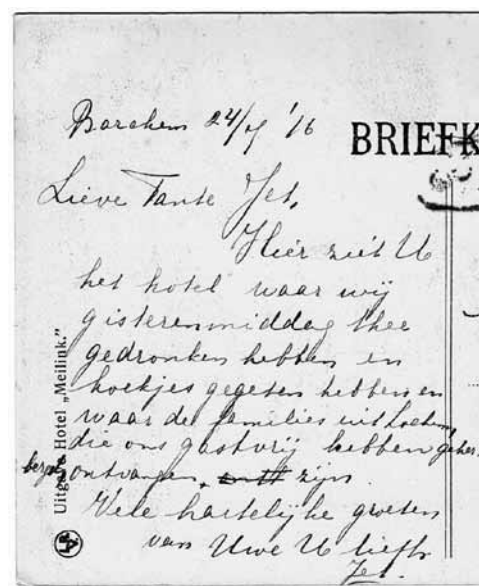 Barchem 24/7 '16
BRIEFK
Lieve Tante Jet,
Hier ziet U
het hotel waar wij
gisterenmiddag thee
gedronken hebben en
koekjes gegeten hebben en
waar de families uit Lochem,
die ons gastvrij hebben
ontvangen, zijn.
Vele hartelijke groeten
van Uwe U liefh
Jet.
Uitgave Hotel „Meilink."